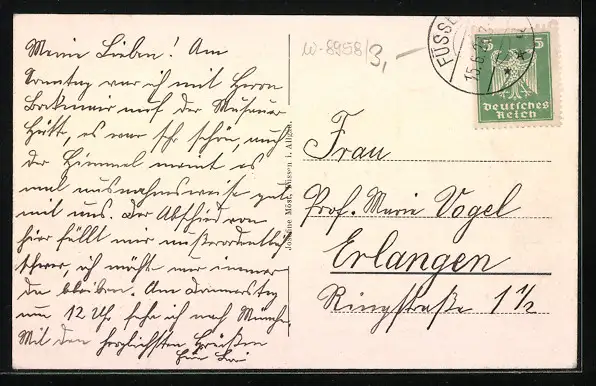 Meine Lieben! Am
Sonntag war ich mit Herrn
auf der Musauer
Hütte, es war sehr schön, auch
der Himmel meint es
mal ausnahmsweise gut
mit uns. Der Abschied von
hier fällt mir außerordentlich
schwer, ich möchte nur immer
da bleiben. Am Donnerstag
um 12 Uhr fahre ich nach München.
Mit den herzlichsten Grüßen
W-8958/3,-
FÜSSE
15.6.
5 5
Deutsches
Reich
Josefine Mösl, Füssen i. Allgäu.
Frau
Prof. Marie Vogel
Erlangen
Ringstraße 1½